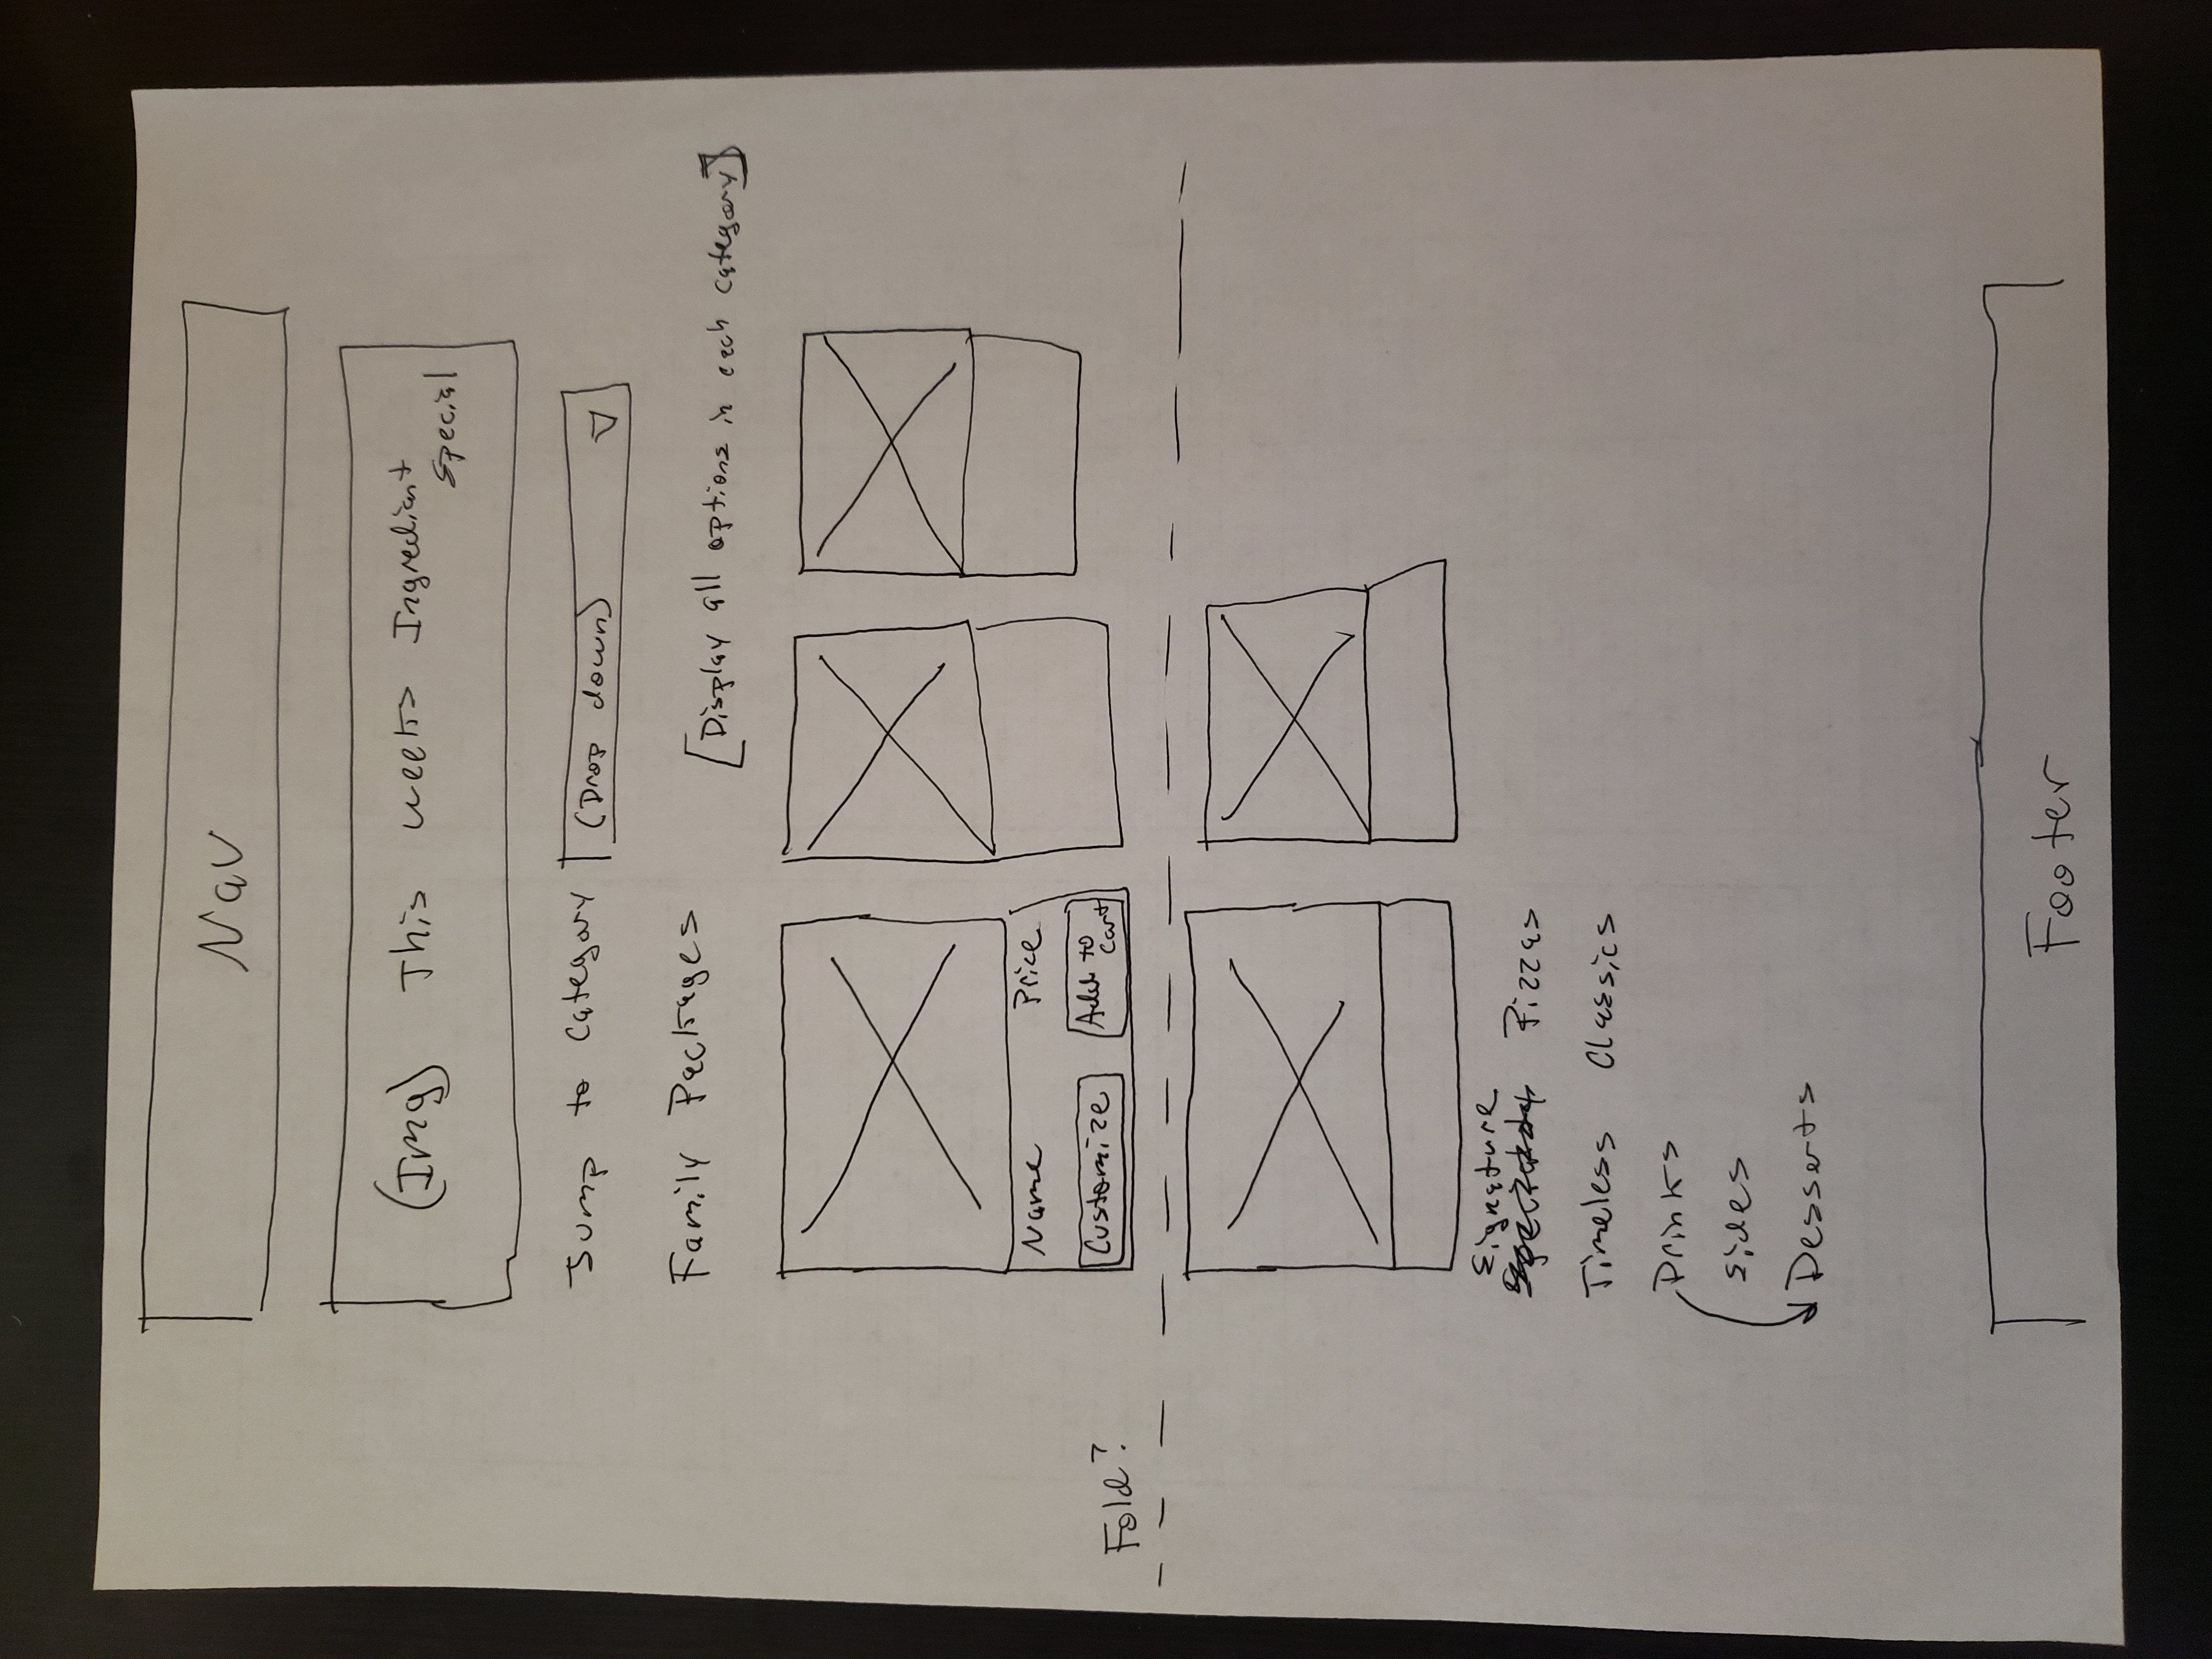 Nav
(Img) This weeks Ingrediant
Special
Jump to Category (Drop down)
Family Packages
[Display all options in each category]
Name Price
Customize Add to
Cart
Fold?
Signature
Specialty Pizzas
Timeless Classics
Drinks
Sides
Desserts
Footer